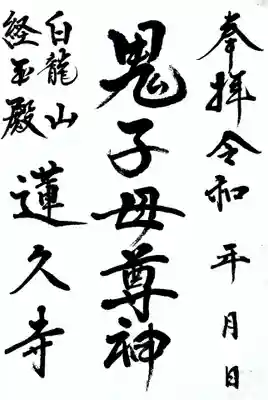 奉拝令和 年月日
鬼子母尊神
白龍山
経王殿
蓮久寺